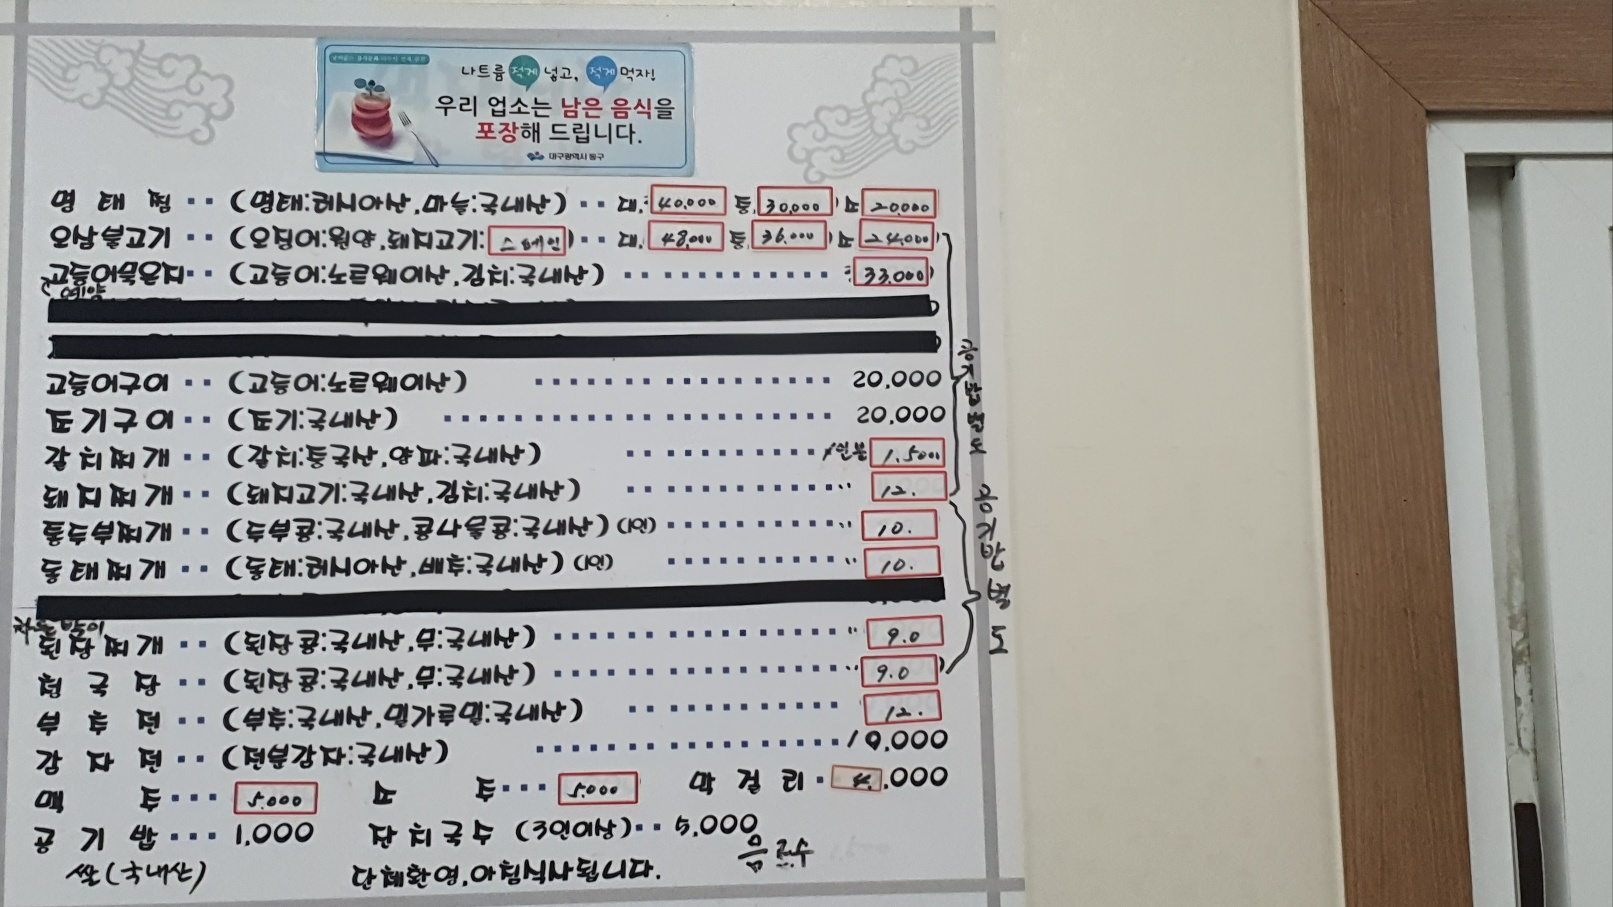 나트륨 적게 넣고, 적게 먹자!
우리 업소는 남은 음식을
포장해 드립니다.
대구광역시 동구
명태찜 (명태:러시아산, 마늘:국내산) 대: 40,000 중 30,000 소 20,000
오삼불고기 (오징어:원양, 돼지고기: 스페인) 대 48,000 중 36,000 소 24,000
고등어묵은지 (고등어:노르웨이산, 김치:국내산) 33,000
예약
고등어구이 (고등어:노르웨이산) 20,000
조기구이 (조기:국내산) 20,000
갈치찌개 (갈치:중국산, 양파:국내산) 1인분 1.5000
돼지찌개 (돼지고기:국내산, 김치:국내산) " 12.
순두부찌개 (순두부콩:국내산, 콩나물콩:국내산) (1인) " 10.
동태찌개 (동태:러시아산, 배추:국내산) (1인) " 10.
된장찌개 (된장콩:국내산, 무:국내산) " 9.0
청국장 (된장콩:국내산, 무:국내산) " 9.0
부추전 (부추:국내산, 밀가루밀:국내산) 12.
감자전 (전분감자:국내산) 10,000
맥주 5.000 소주 5.000 막걸리 4.,000
공기밥 1,000 잔치국수 (3인이상) 5,000
음료수
쌀(국내산) 단체환영, 아침식사됩니다.
공기밥 별도
공기밥 별도